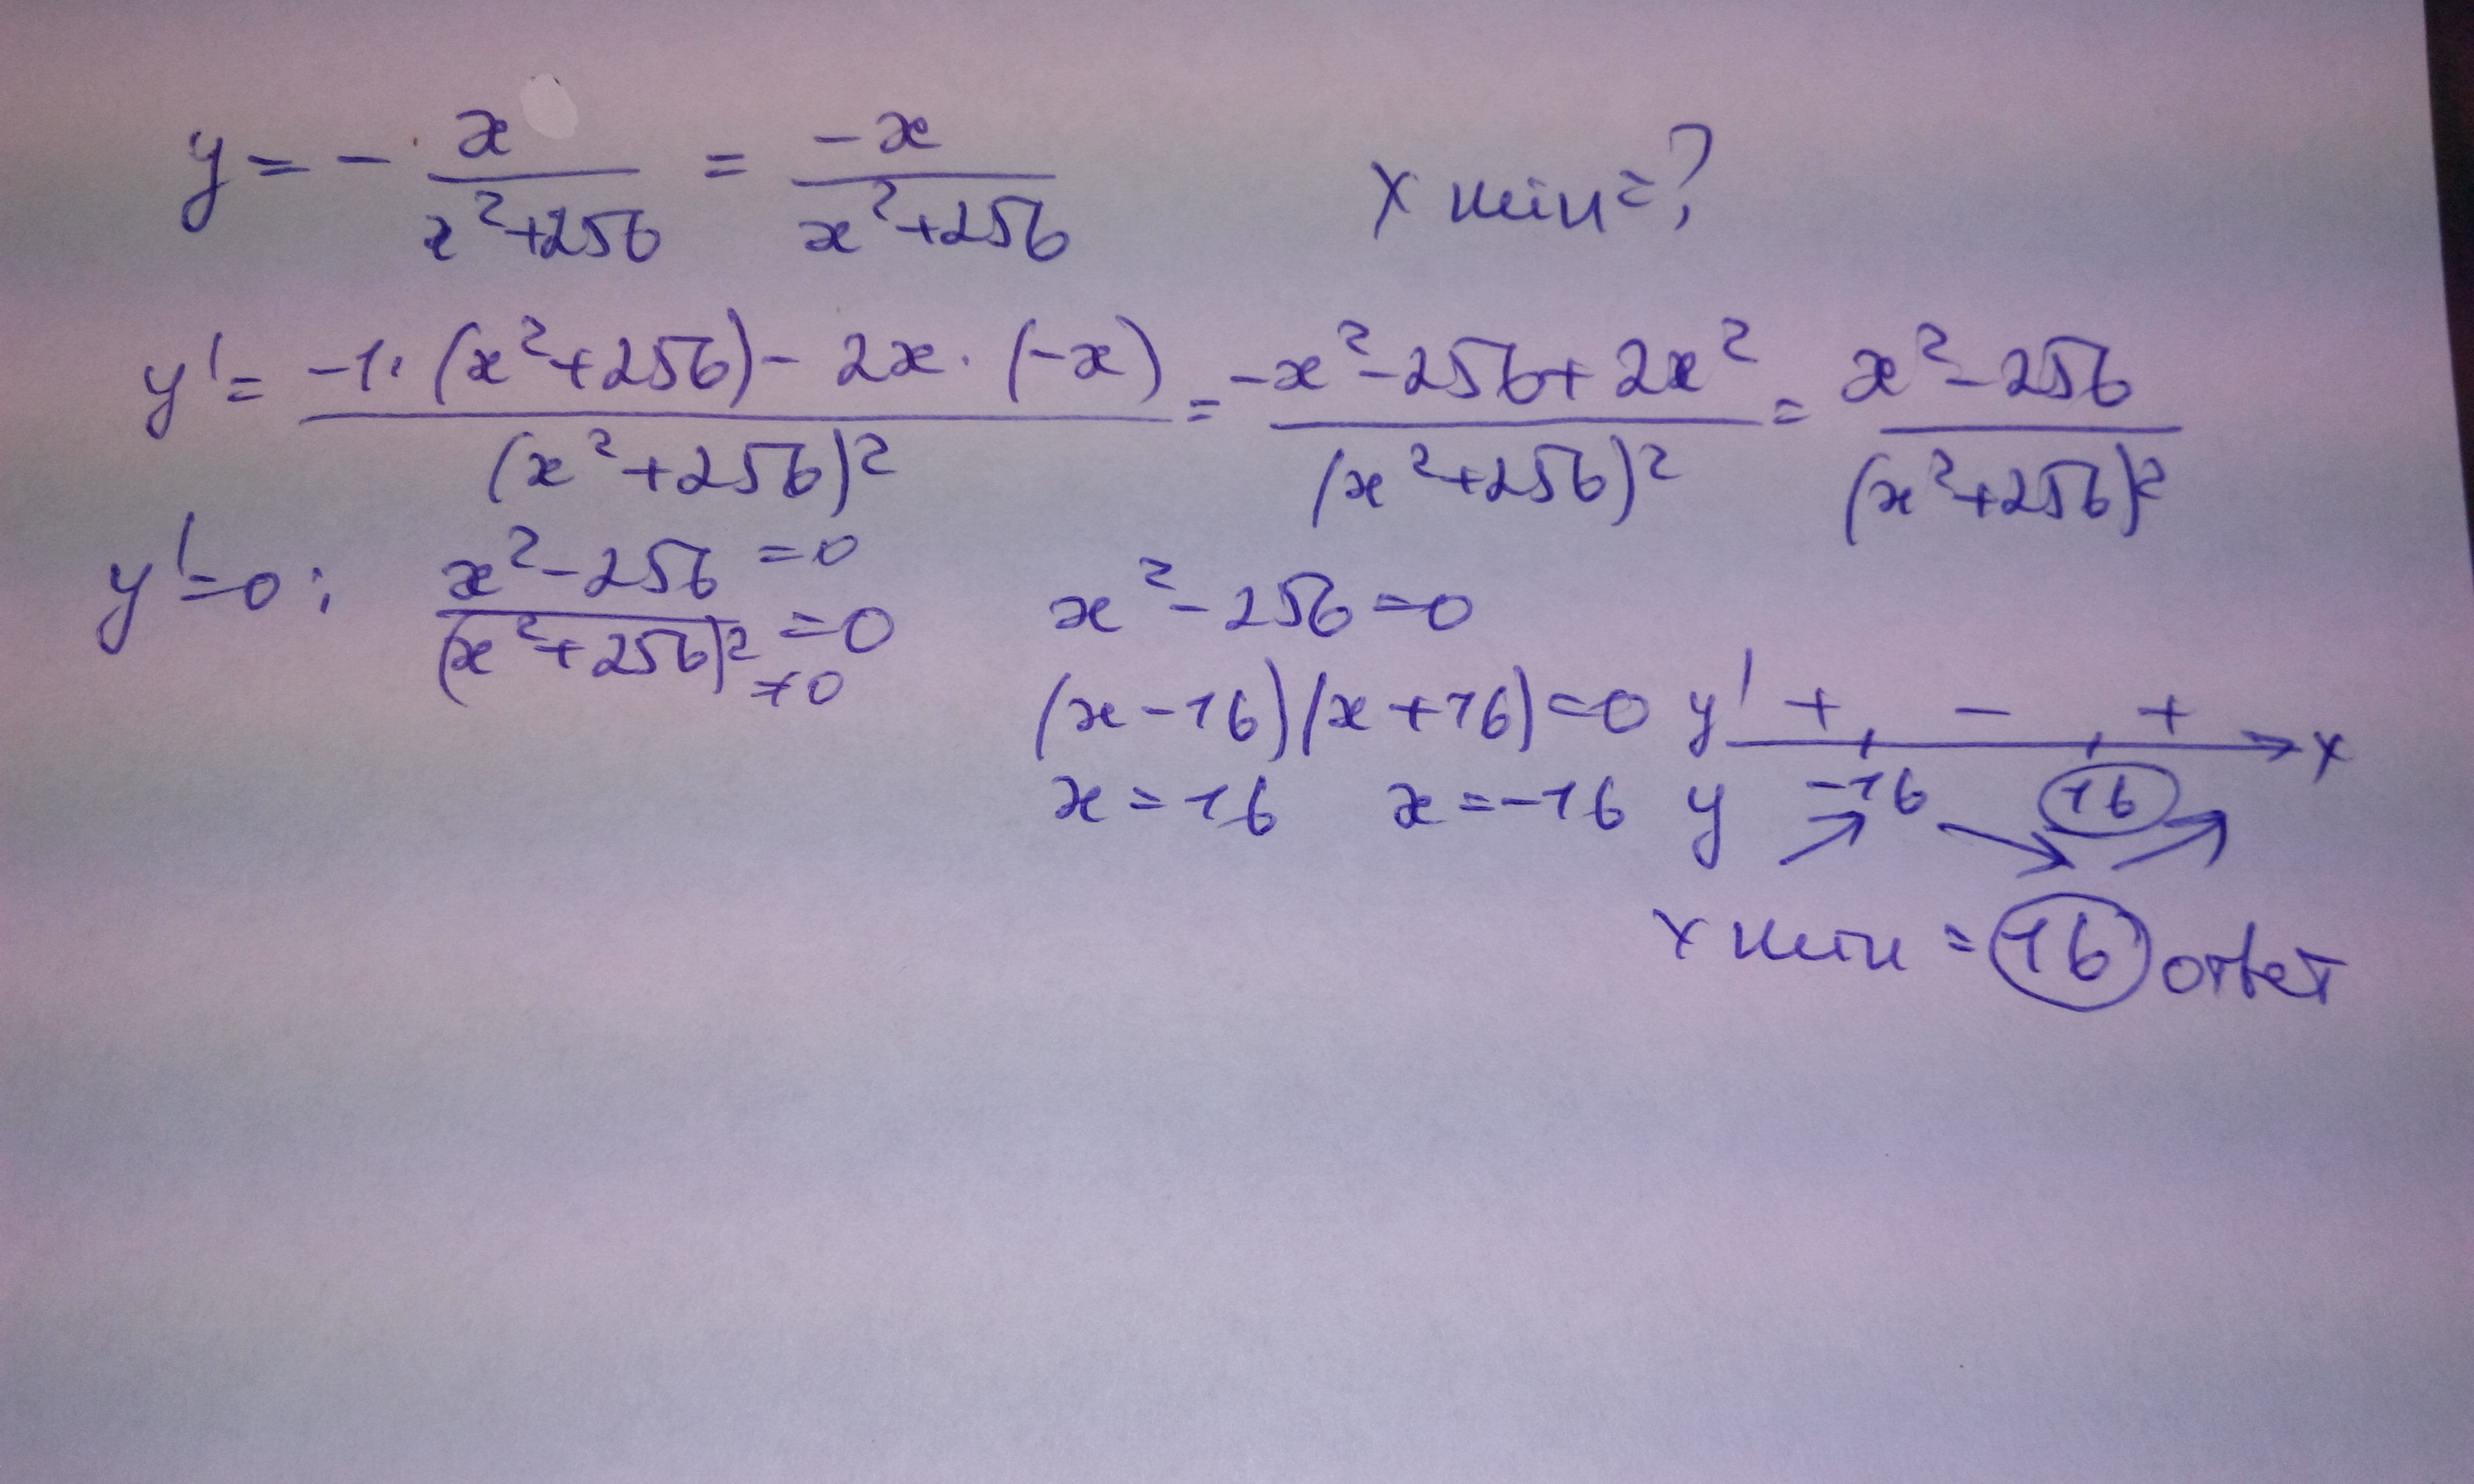 y = - x/(x²+256) = -x/(x²+256)   x min = ?
y' = (-1·(x²+256) - 2x·(-x))/(x²+256)² = (-x²-256+2x²)/(x²+256)² = (x²-256)/(x²+256)²
y'=0: (x²-256)/(x²+256)² = 0   =0   ≠0   x²-256=0
(x-16)(x+16)=0   y' + - + x
x=16   x=-16   y   -16   16   ↗ ↘ ↗
x min = 16 ответ